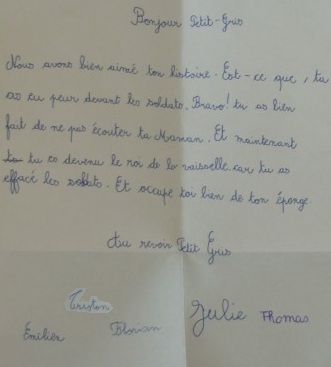 Bonjour Petit-Gris
Nous avons bien aimé ton histoire. Est-ce que, tu
as eu peur devant les soldats. Bravo! tu as bien
fait de ne pas écouter ta Maman. Et maintenant
tu es devenu le roi de la vaisselle. car tu as
effacé les soldats. Et occupe toi bien de ton éponge.
Au revoir Petit Gris
Tristan
Julie Thomas
Emilien Florian